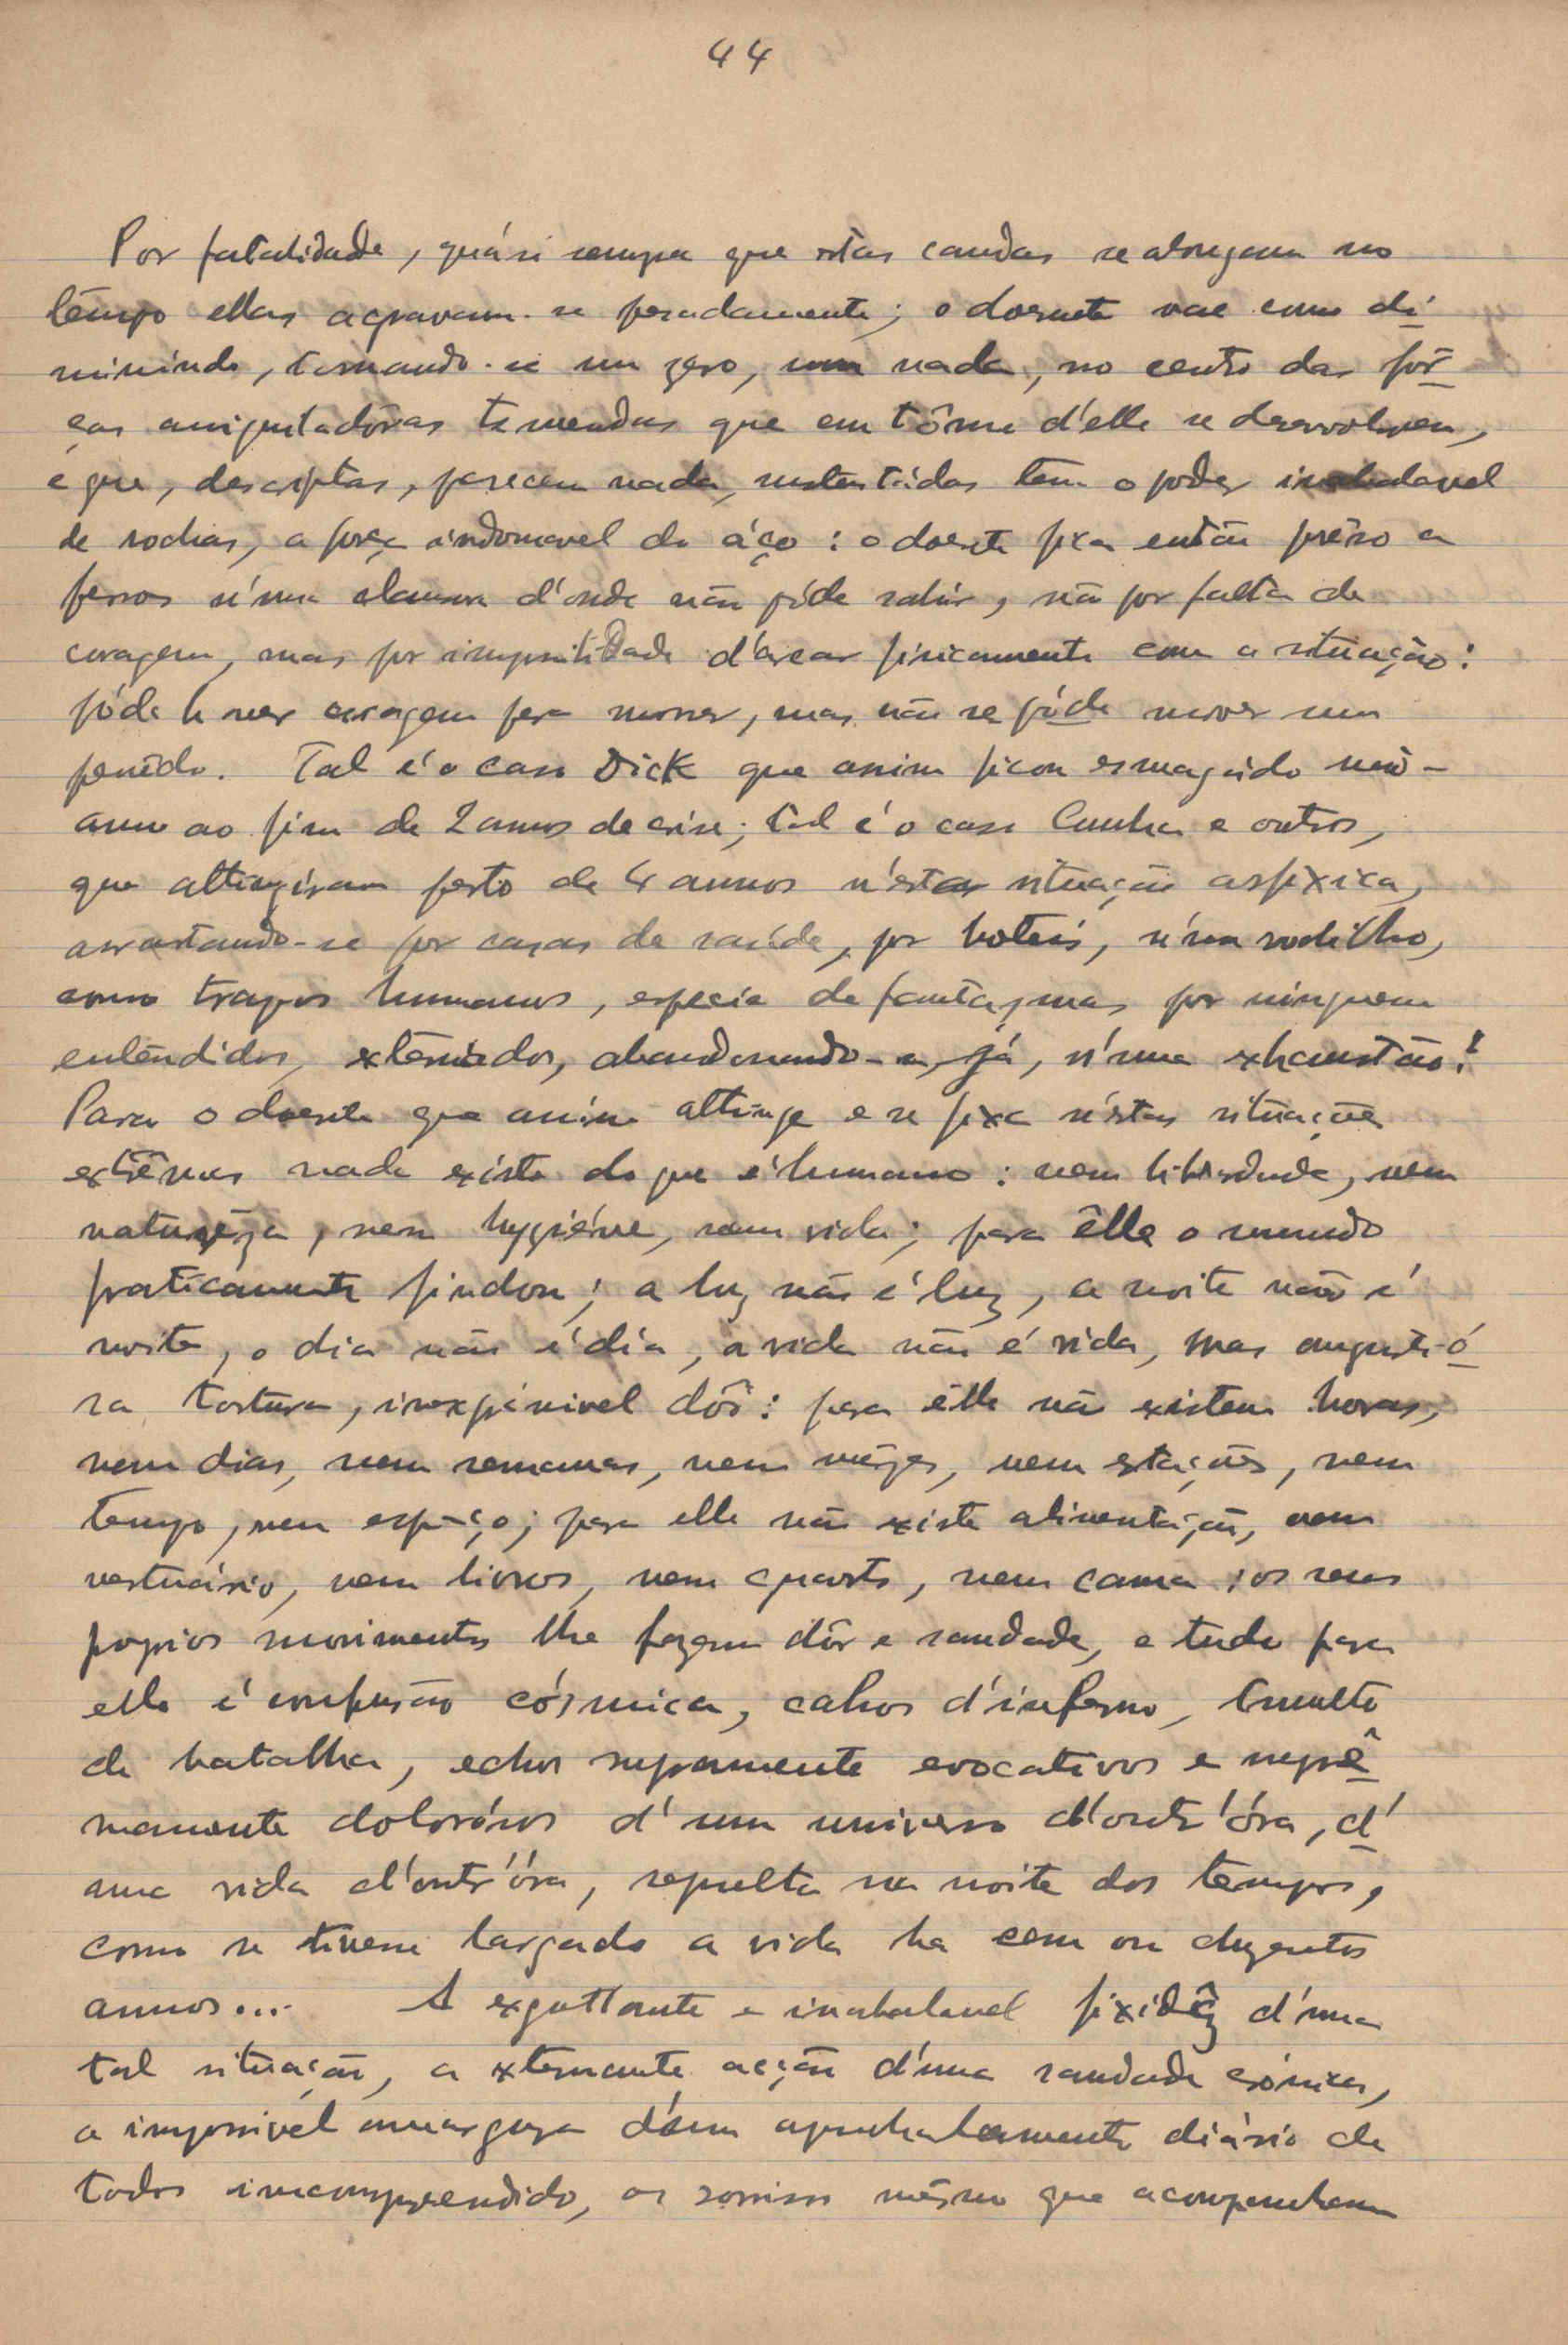 44
Por fatalidade, quási sempre que estas caudas se alongam no
tempo ellas agravam-se pesadamente; o doente vae como di
minuindo, tornando-se um zero, um nada, no centro das fôr
ças aniquiladôras tremendas que em tôrno d'elle se desenvolvem,
e que, descriptas, parecem nada, sustentádas tem o poder inabalavel
de rochas, a força indomavel do áço: o doente fica então prêso a
ferros n'uma clausura d'onde não póde sahir, não por falta de
coragem, mas por impossibilidade d'arcar fisicamente com a situação:
póde haver coragem para morrer, mas não se póde mover um
penêdo. Tal é o caso Dick que assim ficou esmagádo
ao fim de 2 annos de crise; tal é o caso Cunha e outros,
que attingiram perto de 4 annos n'esta situação asfixica,
arrastando-se por casas de saúde, por hoteis, n'um rodilho,
como trapos humanos, especie de fantasmas por ninguem
entendidos, exteniados, abandonando-se, já, n'uma exhaustão!
Para o doente que assim attinge e se fixa n'estas situações
extrêmas nada existe do que é humano: nem liberdade, nem
naturêza, nem hygiéne, nem vida; para êlle o mundo
praticamente findou; a luz não é luz, a noite não é
noite, o dia não é dia, a vida não é vida, mas angusti-ó
sa tortura, inexprimivel dôr: para êlle não existem horas,
nem dias, nem semanas, nem mêzes, nem estações, nem
tempo, nem espaço; para elle não existe alimentação, nem
vestuário, nem livros, nem quarto, nem cama: os seus
proprios movimentos lhe fazem dôr e saudade, e tudo para
elle é confusão cósmica, cahos d'inferno, tumulto
de batalha, echos supramente evocativos e suprê
mamente dolorósos d'um universo d'outr'óra, d'
uma vida d'outr'óra, sepulta na noite dos tempos,
como se tivesse largado a vida ha cem ou duzentos
annos... A exgottante e inabalavel fixidêz d'uma
tal situação, a extenuante acção d'uma saudade crónica,
a impossivel amargura d'um apunhalamento diário de
todos incomprendido, os sorrisos mêsmo que acompanham